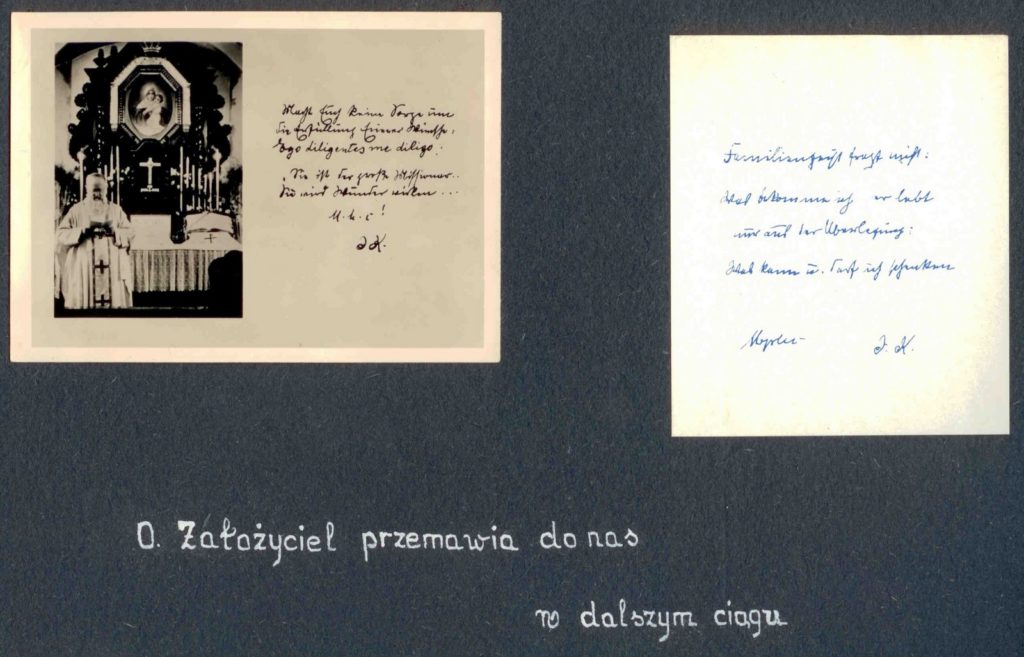 Macht Euch keine Sorge um
die Erfüllung Eurer Wünsche:
Ego diligentes me diligo!
Sie ist der große Missionar..
Sie wird Wunder wirken ...
J. K.
Familiengeist fragt nicht:
Was bekomme ich er lebt
nur aus der Überlegung:
Was kann u. darf ich schenken
J. K.
O. Założyciel przemawia do nas
w dalszym ciągu